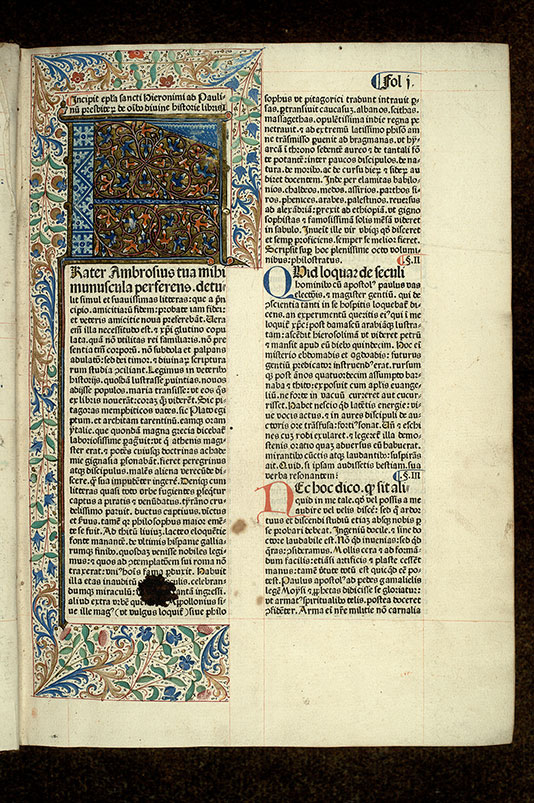 Fol j.
Incipit epl̄a sancti Hieronimi ad Pauli-
nū presbiterū de oībꝰ divine historie libris.
Frater Ambrosius tua mihi
munuscula perferens. detu-
lit simul et suauissimas litteras: que a prin-
cipio. amicitiarū fidem: probate iam fidei:
et veteris amicitie noua preferebāt. Uera
eni illa necessitudo est. ⁊ xp̄i glutino copu-
lata. quā nō vtilitas rei familiaris. nō pre-
sentia tm̄ corporū. nō subdola et palpans
adulatio: sed dei timor. ⁊ diuinarū scriptura
rum studia ꝯciliant. Legimus in veteribꝰ
historijs. quosdā lustrasse puintias. nouos
adijsse populos. maria transisse: vt eos qͦs
ex libris nouerāt: corā qͦꝫ viderēt. Sic pi-
tagoras memphiticos vates. sic Plato egi
ptum. et architam tarentinū. eamqꝫ oram
ytalie. que quondā magna grecia dicebaꝉ
laboriosissime pagͣuit: vt qͥ athenis magi-
ster erat. ⁊ potēs cuiusqꝫ doctrinas achade
mie gignasia psonabāt. fieret peregrinus
atqꝫ discipulus. malēs aliena verecūde di-
scere. qͣꝫ sua impudēter ingerē. Deniqꝫ cum
litteras quasi toto orbe fugientes pseqͥtur
captus a piratis ⁊ venūdatus. tyrāno cru-
delissimo paruit. ductus captiuus. victus
et seruus. tamē qꝫ philosophus maior emē-
te se fuit. Ad titū liuiuꝫ. lacteo eloquētie
fonte manantē. de vltimis hispanie gallia-
rumqꝫ finibꝰ. quosdaꝫ venisse nobiles legi-
mus: ⁊ quos ad ꝯtemplatōem sui roma nō
traxerat: vniꝰ hoīs fama pduxit. Habuit
illa etas inauditū celis. celebran-
dumqꝫ miraculū: vt ingressi.
aliud extra vrbē quererent. Apollonius si-
ue ille magꝰ (vt vulgus loquiꝉ) siue philo
sophus vt pitagorici tradunt intrauit p-
sas. ptransiuit caucasuꝫ. albanos. scithas.
massagethas. opulētissima indie regna pe
netrauit. ⁊ ad extremū latissimo phison am
ne trāsmisso puenit ad bragmanas. vt hy-
arcā ī throno sedentē aureo ⁊ de tantali fō
te potantē: inter paucos discipulos. de na-
tura. de moribꝰ. ac de cursu dieꝝ ⁊ sideꝝ au
diret docentem. Inde per elamitas babilo
nios. chaldeos. medos. assirios. parthos si-
ros. phenices. arabes. palestinos. reuersus
ad alexādriā: prexit ad ethiopiā. vt gigno
sophistas ⁊ famosissimā solis mēsā videret
in sabulo. Inueīt ille vir vbiqꝫ qͩ disceret
et semp proficiens. semper se melior fieret.
Scripsit sup hoc plenissime octo volumi-
nibus: philostratus. §.II
Quid loquar de seculi
hominibꝰ cū apostolꝰ paulus vas
electōis. ⁊ magister gentiū. qui de
ꝯscientia tanti in se hospitis loquebaꝉ di-
cens. an experimentū queritis eiꝰ qui ī me
loquiꝉ xp̄c: post damascū arabiāqꝫ lustra-
tam: ascēdit hierosolimā vt videret petrū
⁊ mansit apud eū diebꝰ quindecim. Hoc eī
misterio ebdomadis ⁊ ogdoadis: futurus
gentiū predicator instruendꝰ erat. rursum
qꝫ post ānos quatuordecim assumpto bar-
naba ⁊ thito: exposuit cum aplis euange-
liū. ne forte in vacuū curreret aut cucur-
risset. Habet nescio qͥd latētis energie: vi-
ue vocis actus. ⁊ in aures discipuli de au-
ctoris ore trāsfusa: fortiꝰ sonat. Uñ ⁊ eschi-
nes cuꝫ rodi exularet. ⁊ legereꝉ illa demo-
stenis. oratio quaꝫ aduersus eū habuerat.
mirantibꝰ cūctis atqꝫ laudantibꝰ. suspirās
ait. Quid. si ipsam audissetis bestiam. sua
verba resonantem: §.III
Nec hoc dico. qꝫ sit ali-
quid in me tale. qͦd vel possis a me
audire vel velis discē: sed qͦ ardor
tuus et discendi studiū etiā absqꝫ nobis p
se probari debeat. Ingeniū docile. ⁊ sine do
ctore laudabile est. Nō qͥd inuenias: sed qͥd
qͣras: ꝯsideramus. Mollis cera ⁊ ad formā-
dum facilis: etiāsi artificis ⁊ plaste cessēt
manus: tamē virtute totū est quicqͥd eē po-
test. Paulus apostolꝰ ad pedes gamalielis
legē Moysi ⁊ prophetas didicisse se gloriatur:
vt armatꝰ spiritualibꝰ telis. postea doceret
ꝯfidēter. Arma eī nr̄e militie nō carnalia